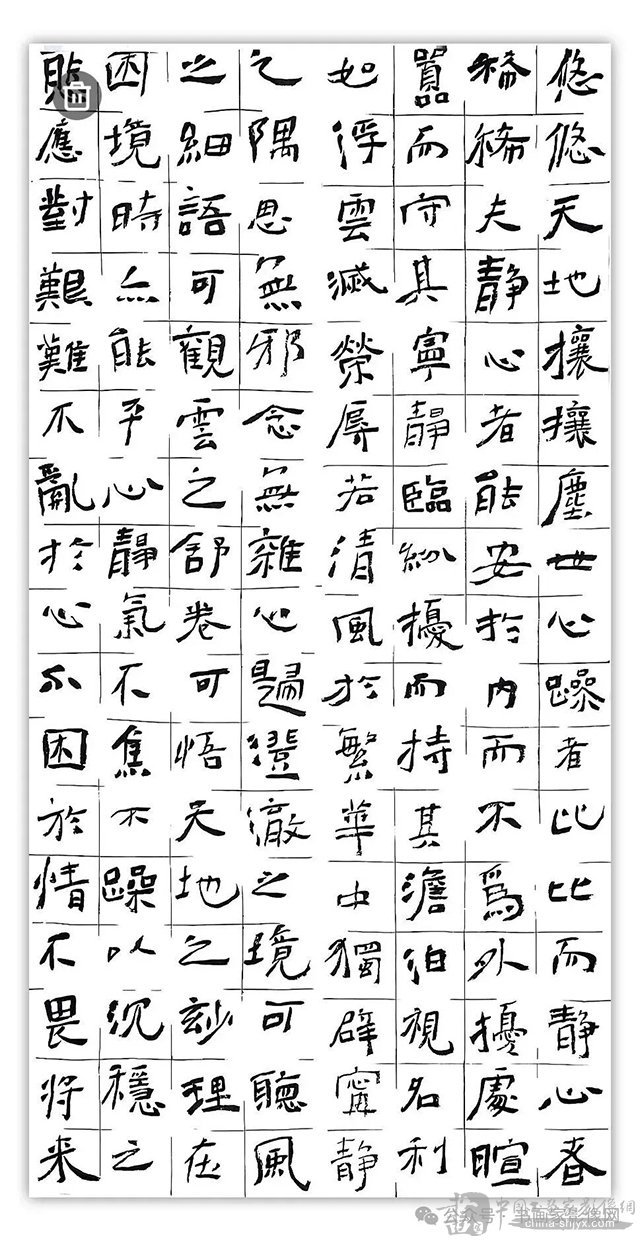 悠悠天地攘攘塵世心躁者比比而靜心者
稀稀夫靜心者能安於內而不爲外擾處暄
囂而守其寧靜臨紛擾而持其澹泊視名利
如浮雲滅榮辱若清風於繁華中獨辟寧靜
之隅思無邪念無雜心歸澄澈之境可聽風
之細語可觀雲之舒卷可悟天地之玅理在
困境時亦能平心靜氣不焦不躁以沉穩之
應對艱難不亂於心不困於情不畏將來
公众号·书画家影像网
china-shjyx.com